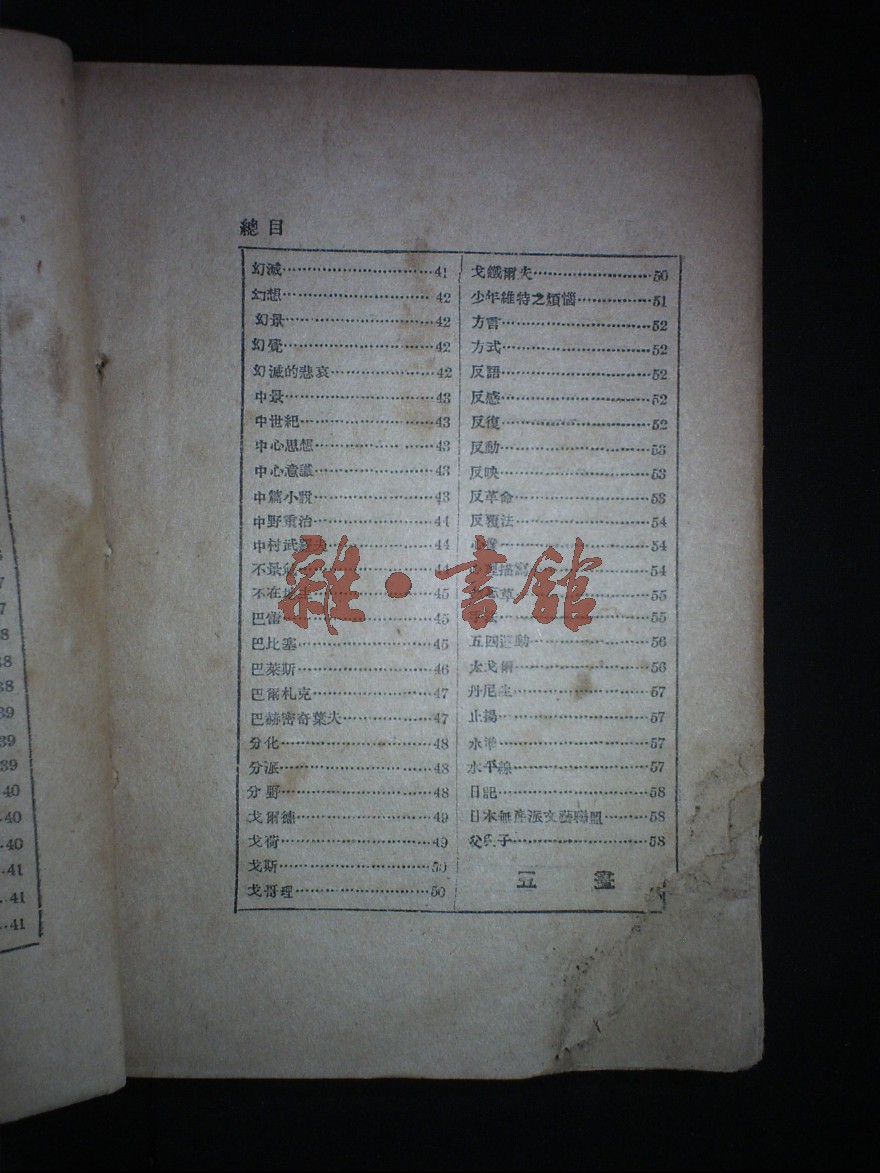 總目
幻滅……41
幻想……42
幻景……42
幻覺……42
幻滅的悲哀……42
中景……43
中世紀……43
中心思想……43
中心意識……43
中篇小說……43
中野重治……44
中村武羅夫……44
不景氣……44
不在地主……45
巴雷……45
巴比塞……45
巴萊斯……46
巴爾札克……47
巴赫密奇葉夫……47
分化……48
分派……48
分野……48
戈爾德……49
戈荷……49
戈斯……50
戈哥理……50
戈鐵爾夫……50
少年維特之煩惱……51
方言……52
方式……52
反語……52
反感……52
反復……52
反動……53
反映……53
反革命……53
反覆法……54
心……54
心理描寫……54
……55
……55
五四運動……56
太戈爾……56
丹尼生……57
止揚……57
水準……57
水平線……57
日記……58
日本無產派文藝聯盟……58
父與子……58
五畫
雜·書館
7
7
8
38
38
39
39
39
40
40
40
41
41
41